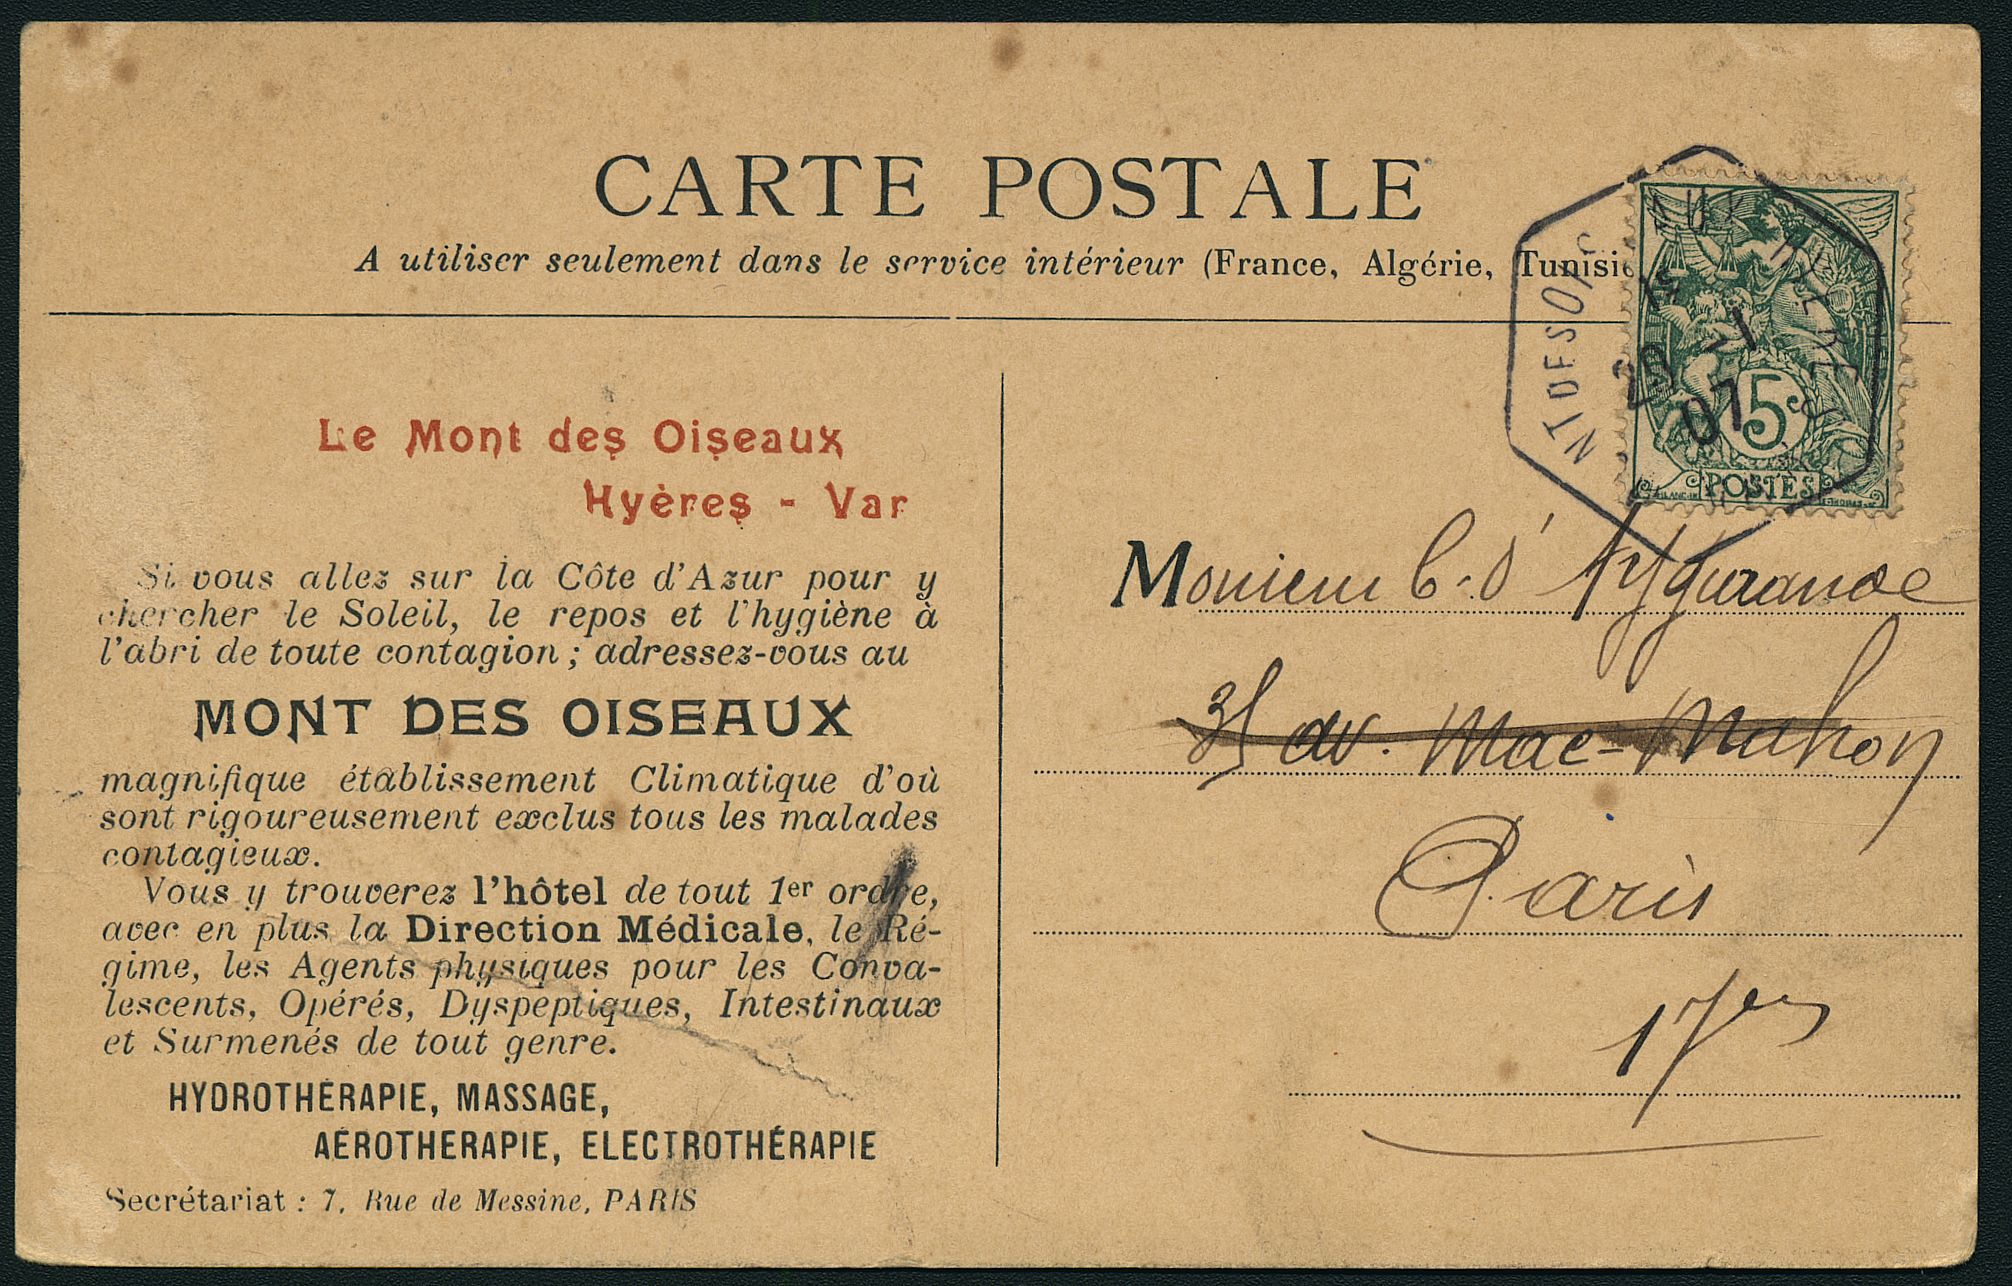 CARTE POSTALE
A utiliser seulement dans le service intérieur (France, Algérie, Tunisie
Le Mont des Oiseaux
Hyères - Var
Si vous allez sur la Côte d'Azur pour y
chercher le Soleil, le repos et l'hygiène à
l'abri de toute contagion ; adressez-vous au
MONT DES OISEAUX
magnifique établissement Climatique d'où
sont rigoureusement exclus tous les malades
contagieux.
Vous y trouverez l'hôtel de tout 1er ordre,
avec en plus la Direction Médicale, le Ré-
gime, les Agents physiques pour les Conva-
lescents, Opérés, Dyspeptiques, Intestinaux
et Surmenés de tout genre.
HYDROTHÉRAPIE, MASSAGE,
AÉROTHERAPIE, ELECTROTHÉRAPIE
Secrétariat : 7, Rue de Messine, PARIS
NT DES O
29 -1
07
5c
POSTES
Monsieur C. d'Aygurande
av. Mac-Mahon
Paris
17e